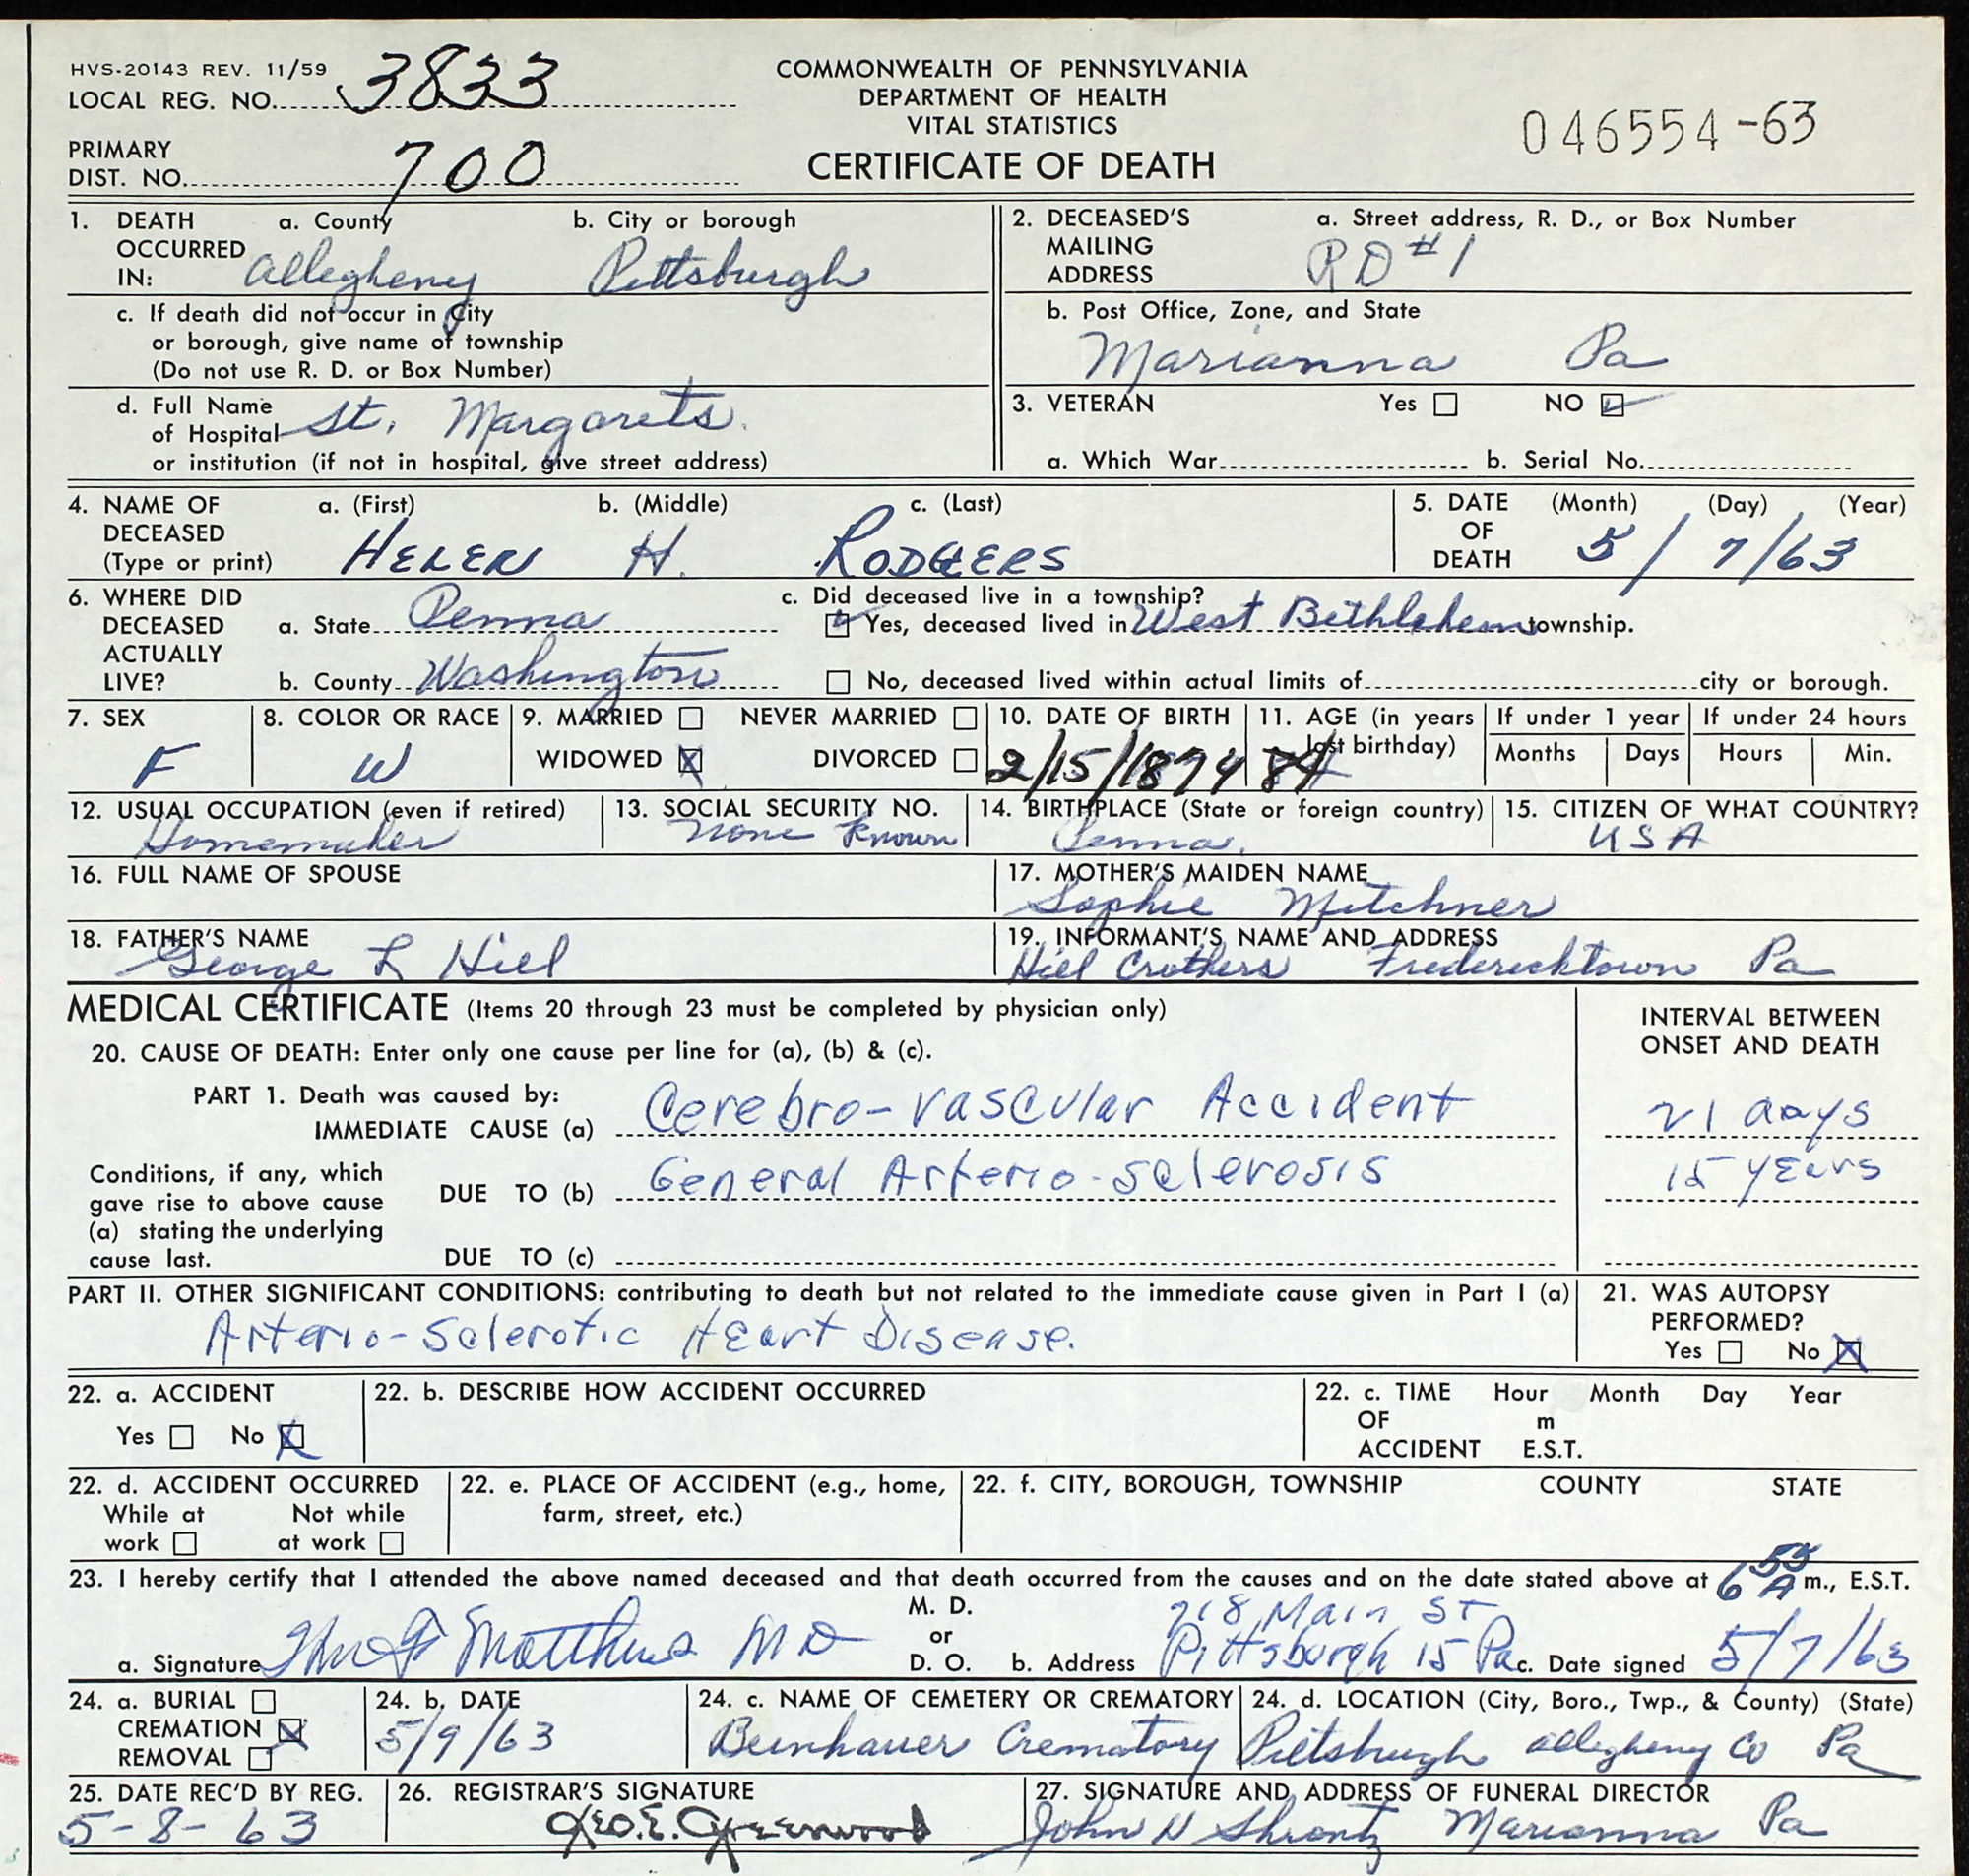 HVS-20143 REV. 11/59
LOCAL REG. NO. 3833
PRIMARY
DIST. NO. 700
COMMONWEALTH OF PENNSYLVANIA
DEPARTMENT OF HEALTH
VITAL STATISTICS
CERTIFICATE OF DEATH
046554-63
1. DEATH OCCURRED IN: a. County b. City or borough
Allegheny Pittsburgh
c. If death did not occur in City
or borough, give name of township
(Do not use R. D. or Box Number)
d. Full Name
of Hospital St. Margarets.
or institution (if not in hospital, give street address)
2. DECEASED'S MAILING ADDRESS a. Street address, R. D., or Box Number
RD #1
b. Post Office, Zone, and State
Marianna Pa
3. VETERAN Yes NO
a. Which War b. Serial No.
4. NAME OF DECEASED (Type or print) a. (First) b. (Middle) c. (Last)
HELEN H. RODGERS
5. DATE OF DEATH (Month) (Day) (Year)
5/7/63
6. WHERE DID DECEASED ACTUALLY LIVE?
a. State Penna
b. County Washington
c. Did deceased live in a township?
Yes, deceased lived in West Bethlehem township.
No, deceased lived within actual limits of city or borough.
7. SEX
F
8. COLOR OR RACE
W
9. MARRIED NEVER MARRIED
WIDOWED X DIVORCED
10. DATE OF BIRTH
2/15/1879
11. AGE (in years last birthday)
84
If under 1 year
Months Days
If under 24 hours
Hours Min.
12. USUAL OCCUPATION (even if retired)
Homemaker
13. SOCIAL SECURITY NO.
None Known
14. BIRTHPLACE (State or foreign country)
Penna.
15. CITIZEN OF WHAT COUNTRY?
USA
16. FULL NAME OF SPOUSE
17. MOTHER'S MAIDEN NAME
Sophie Mitchner
18. FATHER'S NAME
George L Hiel
19. INFORMANT'S NAME AND ADDRESS
Hiel Crothers Fredericktown Pa
MEDICAL CERTIFICATE (Items 20 through 23 must be completed by physician only)
INTERVAL BETWEEN
ONSET AND DEATH
20. CAUSE OF DEATH: Enter only one cause per line for (a), (b) & (c).
PART 1. Death was caused by:
IMMEDIATE CAUSE (a) Cerebro-vascular Accident 21 days
Conditions, if any, which
gave rise to above cause
(a) stating the underlying
cause last.
DUE TO (b) General Arterio-sclerosis 15 years
DUE TO (c)
PART II. OTHER SIGNIFICANT CONDITIONS: contributing to death but not related to the immediate cause given in Part I (a)
Arterio-Sclerotic Heart Disease.
21. WAS AUTOPSY
PERFORMED?
Yes No X
22. a. ACCIDENT
Yes No X
22. b. DESCRIBE HOW ACCIDENT OCCURRED
22. c. TIME OF ACCIDENT Hour Month Day Year
m
E.S.T.
22. d. ACCIDENT OCCURRED
While at work Not while at work
22. e. PLACE OF ACCIDENT (e.g., home,
farm, street, etc.)
22. f. CITY, BOROUGH, TOWNSHIP COUNTY STATE
23. I hereby certify that I attended the above named deceased and that death occurred from the causes and on the date stated above at 6 55 A m., E.S.T.
a. Signature Matthews MD
M. D.
or
D. O.
b. Address 218 Main ST
Pittsburgh 15 Pa
c. Date signed 5/7/63
24. a. BURIAL
CREMATION X
REMOVAL
24. b. DATE
5/9/63
24. c. NAME OF CEMETERY OR CREMATORY
Beinhauer Crematory
24. d. LOCATION (City, Boro., Twp., & County) (State)
Pittsburgh Allegheny Co Pa
25. DATE REC'D BY REG.
5-8-63
26. REGISTRAR'S SIGNATURE
Geo. E. Greenwood
27. SIGNATURE AND ADDRESS OF FUNERAL DIRECTOR
John N Shrontz Marianna Pa